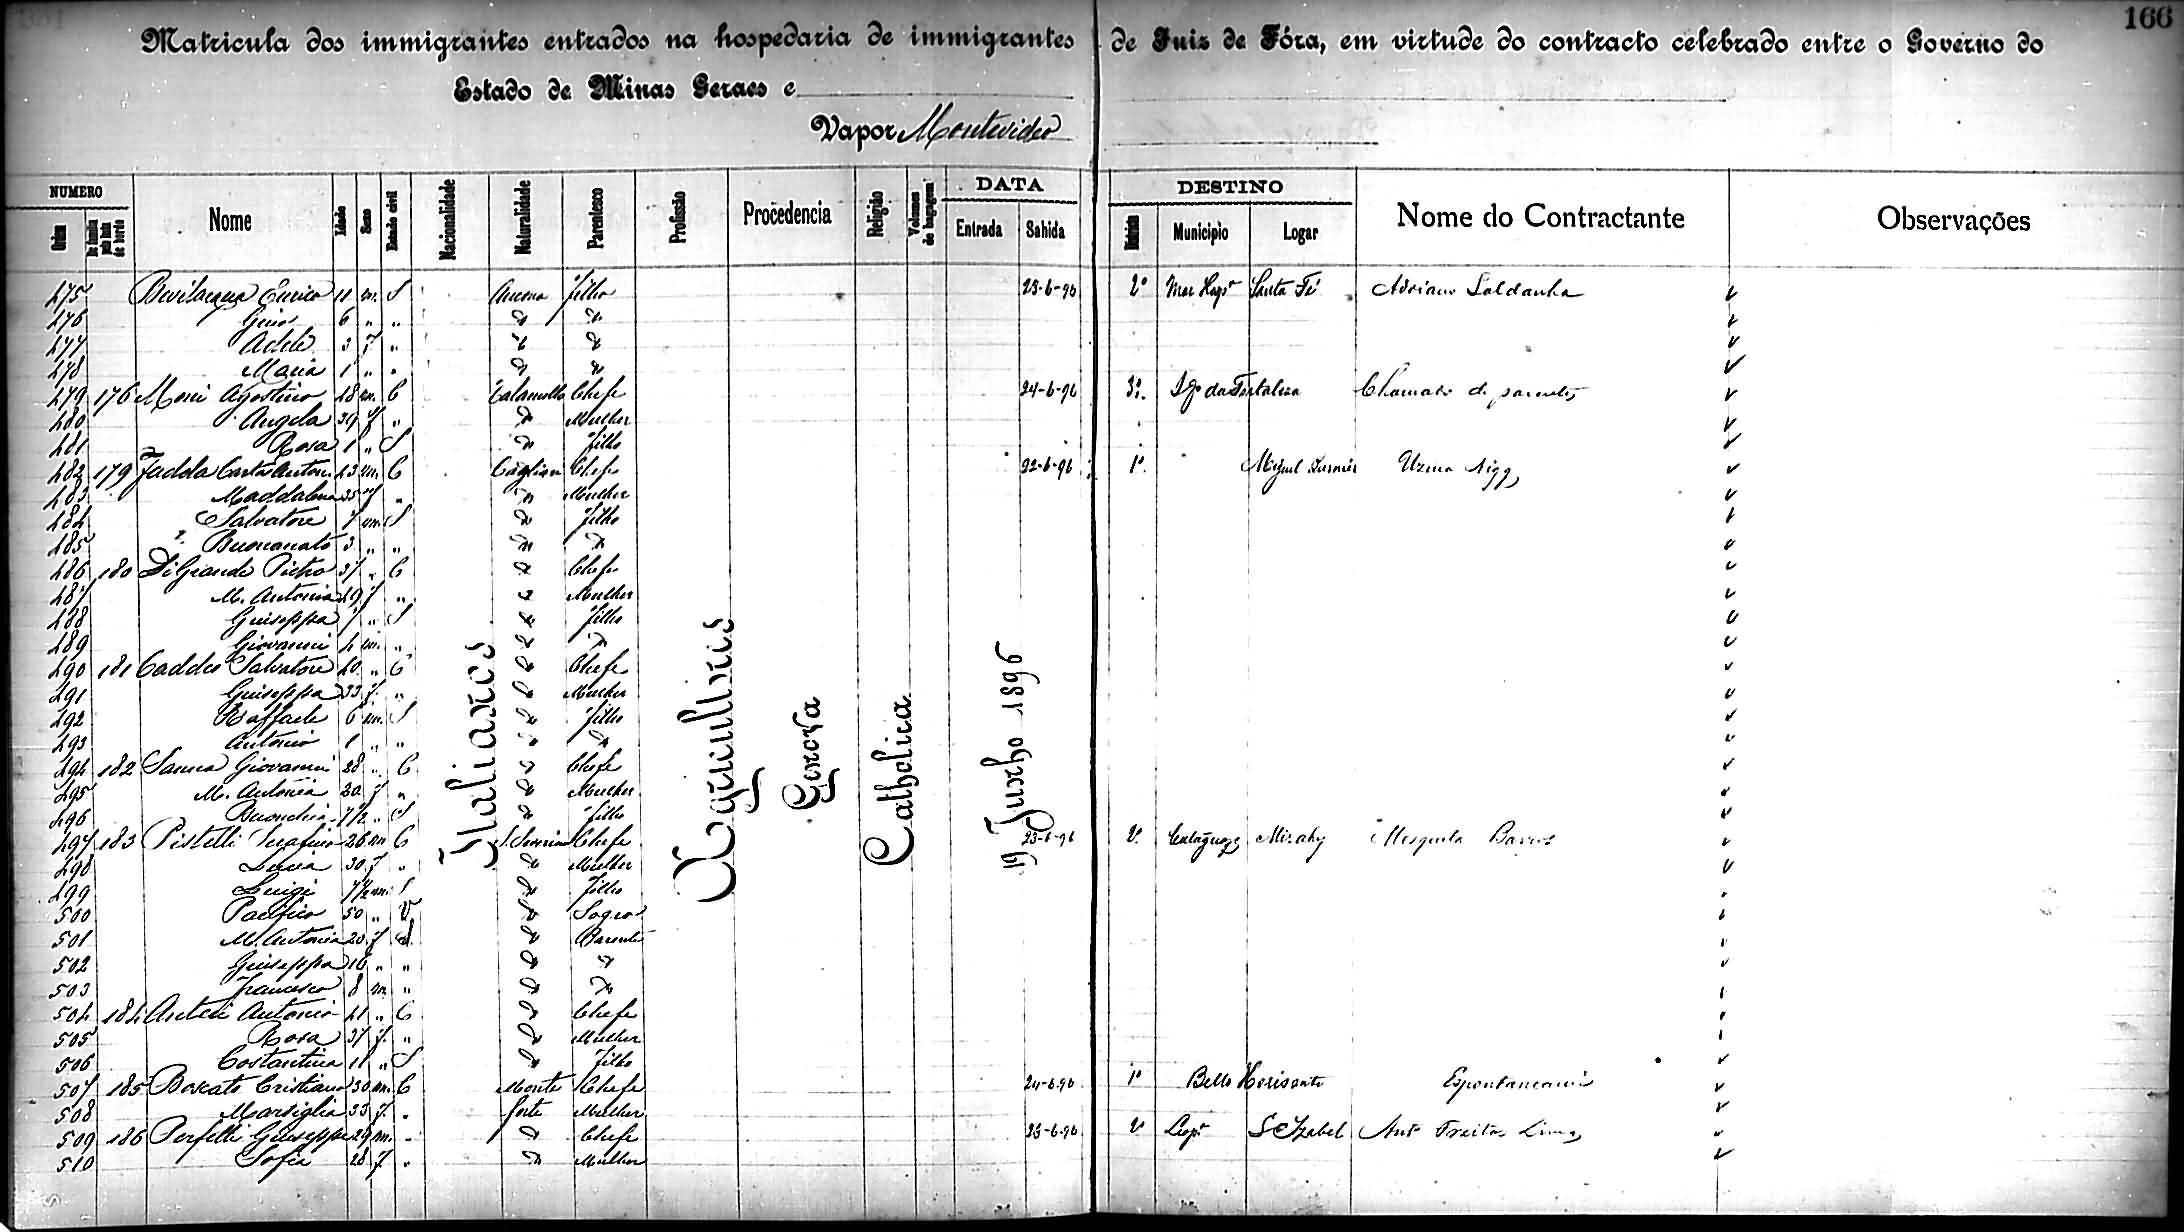 166
Matricula dos immigrantes entrados na hospedaria de immigrantes de Juiz de Fóra, em virtude do contracto celebrado entre o Governo do
Estado de Minas Geraes e
Vapor Montevideo
NUMERO Nome Idade Sexo Estado civil Nacionalidade Naturalidade Parentesco Profissão Procedencia Religião Volumes de bagagem DATA DESTINO Nome do Contractante Observações
Ordem De familia pela lista de bordo Entrada Sahida Districto Municipio Logar
Italianos Agricultores Genova Catholica 19 Junho 1896
475 Bevilacqua Enrico 11 m. S Ancona filho 23-6-96 2º Mar Hespª Santa Fé Adriano Saldanha
476 6 " " " "
477 Adele 3 f " " "
478 Maria 1 " " " "
479 176 Moni Agostino 48 m. C Talamello Chefe 24-6-96 3º. Chamado de parentes
480 Angela 39 f " " Mulher
481 Rosa 1 " S " filho
482 179 Fadda 43 m. C Cagliari Chefe 22-6-96 1º Miguel Burnier Uzina Wigg
483 Maddalena 35 f " " Mulher
484 Salvatore 7 m S " filho
485 3 " " " "
486 180 Di Grande Pietro 37 " C " Chefe
487 M. Antonia 29 f " " Mulher
488 Guiseppa 7 " S " filho
489 Giovanni 4 m. " " "
490 181 Caddeo Salvatore 40 " C " Chefe
491 Guiseppa 33 f. " " Mulher
492 Raffaele 6 m. S " filho
493 Antonio 1 " " " "
494 182 Sanna Giovanni 28 " C " Chefe
495 M. Antonia 20 f " " Mulher
496 1/2 " S " filho
497 183 Pistelli Serafino 26 m C Chefe 23-6-96 2º Cataguazes Mirahy Mesquita Barros
498 Lucia 30 f " " Mulher
499 Luigi 1/2 m. S " filho
500 Pacifico 50 " V " Sogro
501 M. Antonia 20 f S " Parente
502 Guiseppa 16 " " " "
503 Francesco 8 m " " "
504 184 Antonio 41 " C " Chefe
505 Rosa 37 f. " " Mulher
506 Costantina 11 " S " filho
507 185 Boscato Cristiano 30 m. C Monte Chefe 24-6-96 1º Bello Horisonte
508 Marsiglia 33 f. " forte Mulher
509 186 Perfetti Guiseppe 29 m. " " Chefe 23-6-96 2º Leopª S Izabel Antº Freitas Lima
510 Sofia 28 f " " Mulher